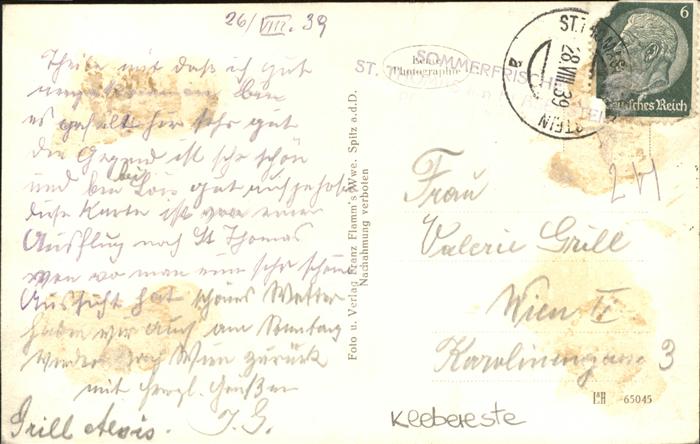 26/VIII.39
Theile mir daß ich gut
angekommen bin
es gefällt hier sehr gut
die Gegend ist sehr schön
und bin bei Lois gut aufgehoben
diese Karte ist von einem
Ausflug nach St Thomas
wo man eine sehr schöne
Aussicht hat schönes Wetter
haben wir auch am Sonntag
werden nach Wien zurück
mit herzl. Grüßen
Grill Alois. J. G.
Foto u. Verlag Franz Flamm's Wwe. Spitz a.d.D.
Nachahmung verboten
Echte
Photographie
SOMMERFRISCHE
ST.
28.VIII.39
a
6
Deutsches Reich
Frau
Valerie Grill
Wien II
Karolinengasse 3
L&H 65045
Klebereste